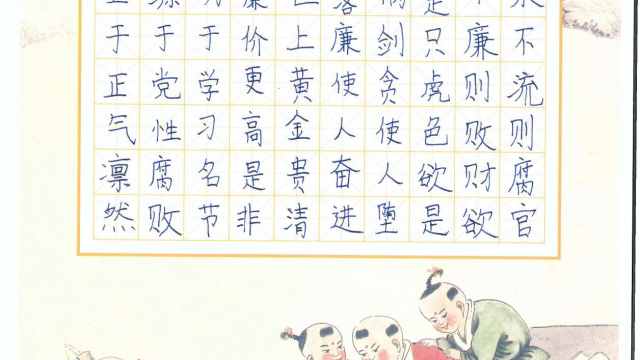 不流则腐官
不廉则败财欲
是只虎色欲是
剑贪使人堕
落廉使人奋进
上黄金贵清
廉价更高是非
于学习名节
于党性腐败
于正气凛然